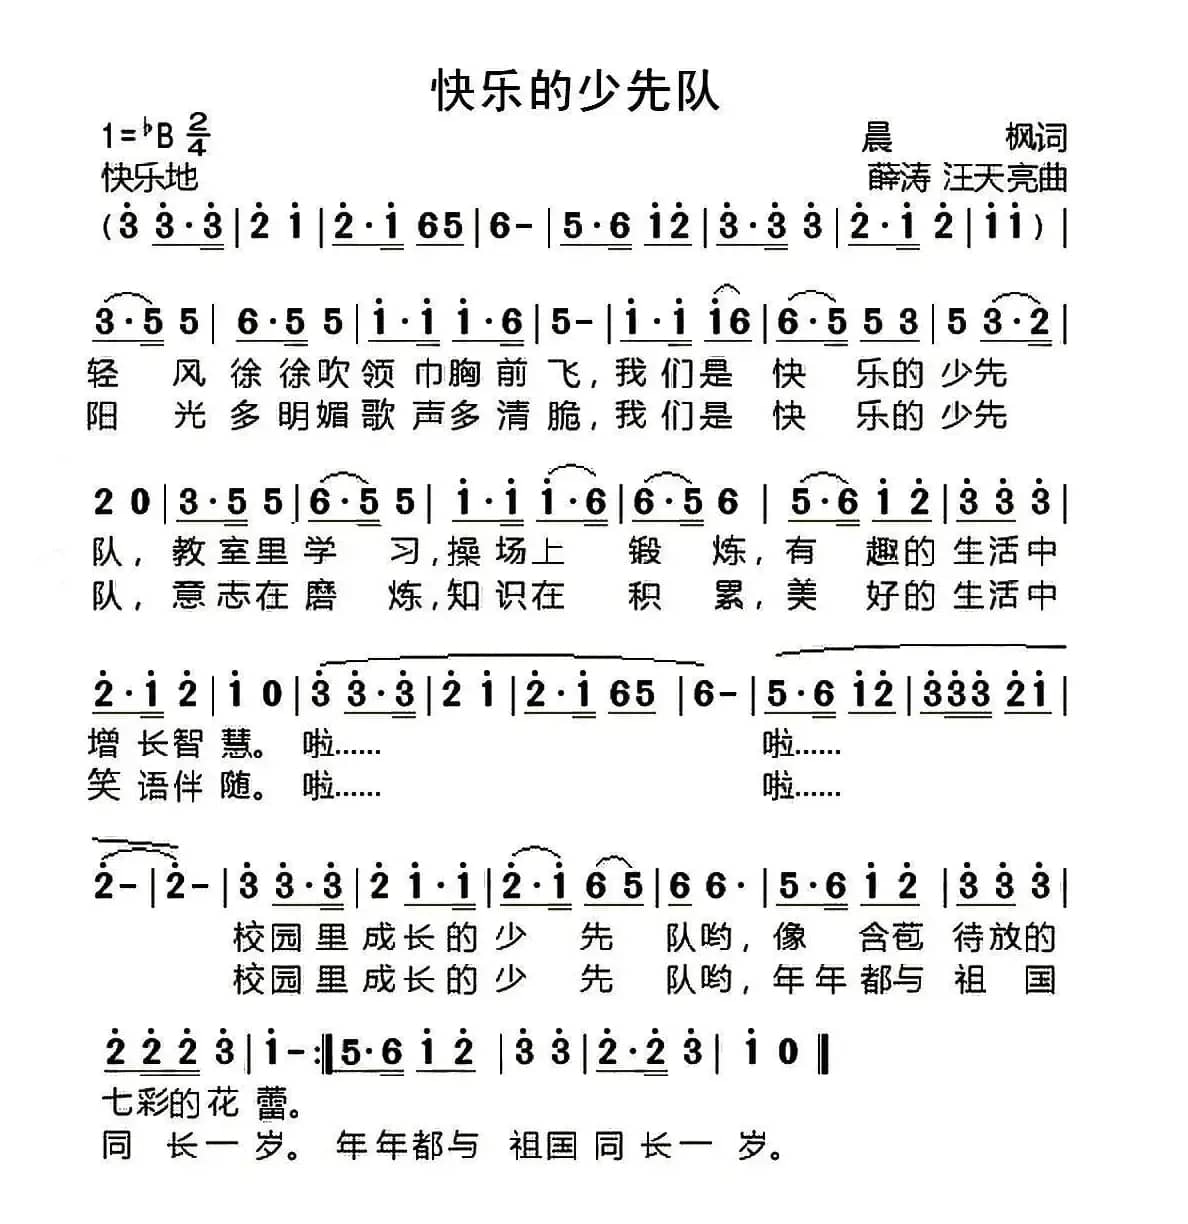 快乐的少先队
1=♭B 2/4
晨 枫词
快乐地
薛涛 汪天亮曲
( 3 3·3 | 2 1 | 2·1 65 | 6- | 5·6 12 | 3·3 3 | 2·1 2 | 11 ) |
3·5 5 | 6·5 5 | 1·1 1·6 | 5- | 1·1 16 | 6·5 53 | 5 3·2 |
轻 风 徐徐吹领巾胸前飞,我们是 快 乐的少先
阳 光多明媚歌声多清脆,我们是 快 乐的少先
2 0 | 3·5 5 | 6·5 5 | 1·1 1·6 | 6·5 6 | 5·6 1 2 | 3 3 3 |
队, 教室里学 习,操场上 锻 炼,有 趣的生活中
队, 意志在磨 炼,知识在 积 累,美 好的生活中
2·1 2 | 1 0 | 3 3·3 | 2 1 | 2·1 65 | 6- | 5·6 12 | 333 21 |
增长智慧。 啦...... 啦......
笑语伴随。 啦...... 啦......
2- | 2- | 3 3·3 | 2 1·1 | 2·1 6 5 | 6 6· | 5·6 1 2 | 3 3 3 |
校园里成长的少 先 队哟,像 含苞 待放的
校园里成长的少 先 队哟,年年都与 祖 国
2 2 2 3 | 1- :‖ 5·6 1 2 | 3 3 | 2·2 3 | 1 0 ‖
七彩的花蕾。
同 长一 岁。 年年都与 祖国同长一 岁。